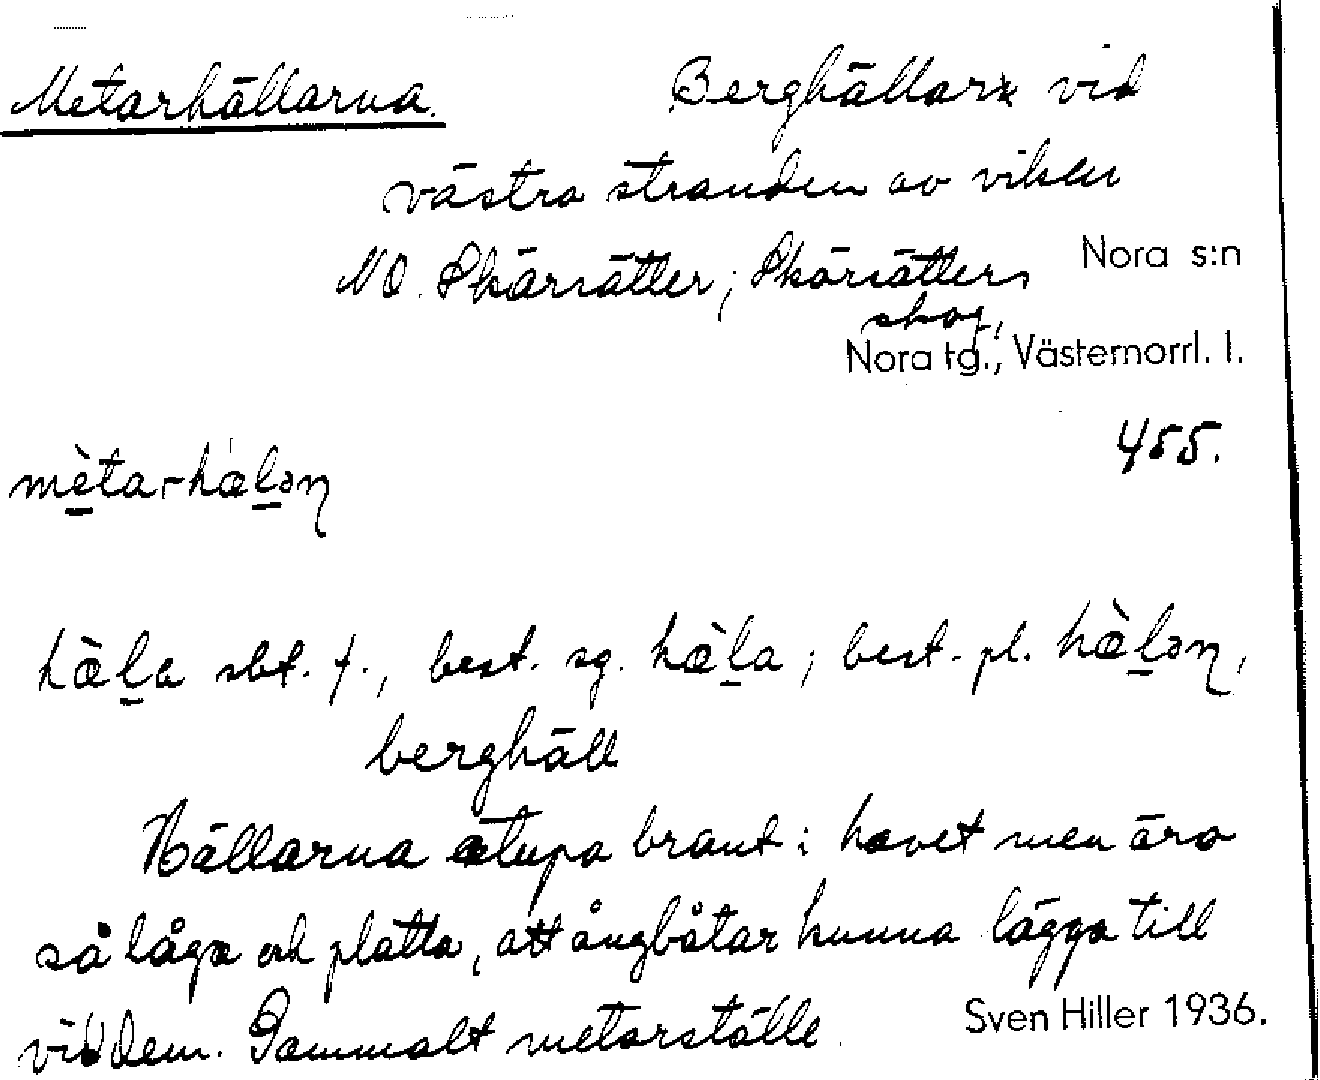 Metarhällarna. Berghällar vid
västra stranden av viken
NO. Skärsätter; Skärsätters
skog,
Nora s:n
Nora tg., Västernorrl. l.
455.
mèta,-hæḷən
hæ̀ḷa sbt. f., best. sg. hæ̀ḷa; best. pl. hæ̀ḷən,
berghäll
Hällarna stupa brant i havet men äro
så låga och platta, att ångbåtar kunna lägga till
vid dem. Gammalt metarställe.
Sven Hiller 1936.